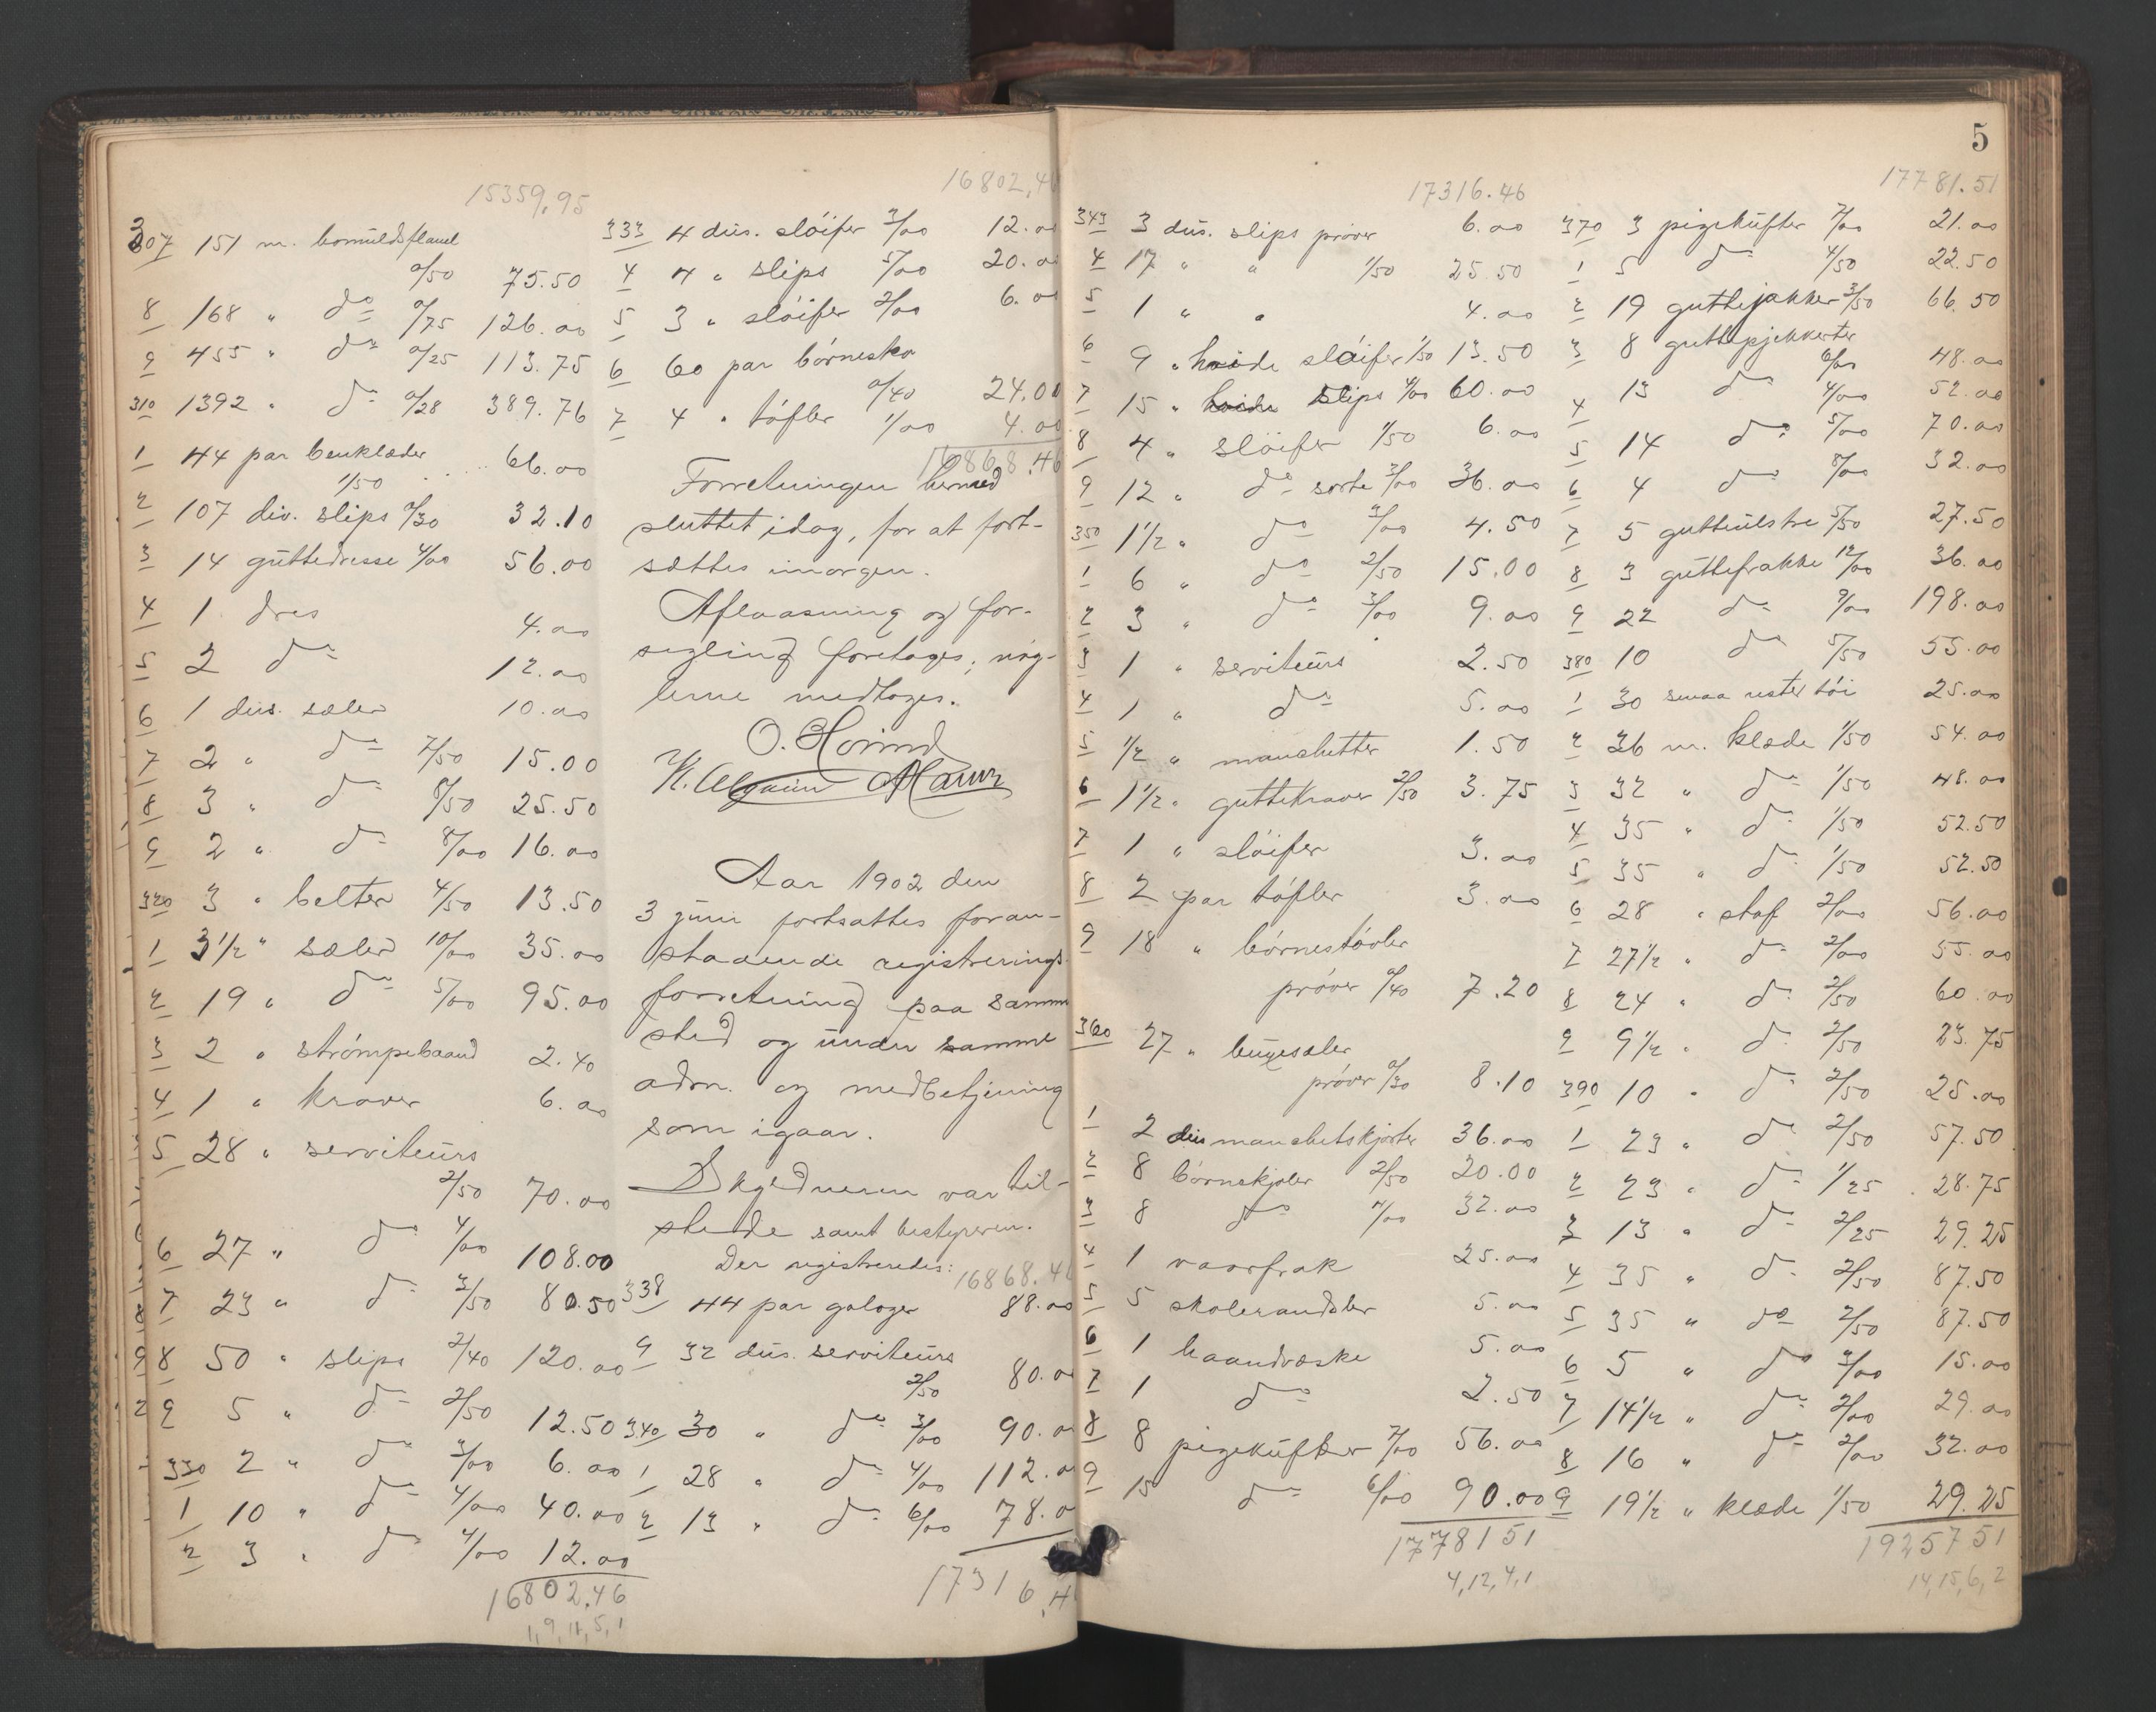 15359,95
307 151 m. bomuldsflanel
0/50 75.50
8 168 " do 0/75 126.00
9 455 " do 0/25 113.75
310 1392 " do 0/28 389.76
1 44 par benklæder
1/50 66.00
2 107 div. slips 0/30 32.10
3 14 guttedresse 4/00 56.00
4 1 dres 4.00
5 2 do 12.00
6 1 dus. sæler 10.00
7 2 " do 7/50 15.00
8 3 " do 8/50 25.50
9 2 " do 8/00 16.00
320 3 " belter 4/50 13.50
1 3 1/2 " sæler 10/00 35.00
2 19 " do 5/00 95.00
3 2 " strømpebaand 2.40
4 1 " kraver 6.00
5 28 " serviteurs
2/50 70.00
6 27 " do 4/00 108.00
7 23 " do 3/50 80.50
8 50 " slips 2/40 120.00
9 5 " do 2/50 12.50
330 2 " do 3/00 6.00
1 10 " do 4/00 40.00
2 3 " do 4/00 12.00
16802.46
1,9,11,5,1
16802,46
333 4 dus. sløifer 3/00 12.00
4 4 " slips 5/00 20.00
5 3 " sløifer 2/00 6.00
6 60 par børnesko
0/40 24.00
7 4 " tøfler 1/00 4.00
16868.46
Forretningen hermed
sluttet idag, for at fort-
sættes imorgen.
Aflaasning og for-
segling foretoges; nøg-
lerne medtoges.
Aar 1902 den
3 juni fortsattes foran-
staaende registrerings-
forretning paa samme
sted og under samme
adm. og medbetjening
som igaar.
Skyldneren var til-
stede samt bestyreren.
Der registreredes:
16868.46
338 44 par galoger 88.00
9 32 dus. serviteurs
2/50 80.00
340 30 " do 3/00 90.00
1 28 " do 4/00 112.00
2 13 " do 6/00 78.0
17316.4
5
17316.46
343 3 dus. slips prøver 6.00
4 17 " " 1/50 25.50
5 1 " " 4.00
6 9 " hvide sløifer 1/50 13.50
7 15 " hvide slips 4/00 60.00
8 4 " sløifer 1/50 6.00
9 12 " do sorte 3/00 36.00
350 1 1/2 " do 3/00 4.50
1 6 " do 2/50 15.00
2 3 " do 3/00 9.00
3 1 " serviteurs 2.50
4 1 " do 5.00
5 1/2 " manchetter 1.50
6 1 1/2 " guttekraver 2/50 3.75
7 1 " sløifer 3.00
8 2 par tøfler 3.00
9 18 " børnestøvler
prøver 0/40 7.20
360 27 " buxesæler
prøver 0/30 8.10
1 2 dus manchetskjorter 36.00
2 8 børnekjoler 2/50 20.00
3 8 do 4/00 32.00
4 1 vaarfrak 25.00
5 5 skolerandsler 5.00
6 1 haandvæske 5.00
7 1 do 2.50
8 8 pigekufter 7/00 56.00
9 15 do 6/00 90.00
1778151
4,12,4,1
17781.51
370 3 pigekufter 7/00 21.00
1 5 do 4/50 22.50
2 19 guttejakker 3/50 66.50
3 8 guttepjekkerter
6/00 48.00
4 13 do 4/00 52.00
5 14 do 5/00 70.00
6 4 do 8/00 32.00
7 5 gutteulstre 5/50 27.50
8 3 guttefrakke 12/00 36.00
9 22 do 9/00 198.00
380 10 do 5/50 55.00
1 30 smaa rester tøi 25.00
2 36 m. klæde 1/50 54.00
3 32 " do 1/50 48.00
4 35 " do 1/50 52.50
5 35 " do 1/50 52.50
6 28 " stof 2/00 56.00
7 27 1/2 " do 2/00 55.00
8 24 " do 2/50 60.00
9 9 1/2 " do 2/50 23.75
390 10 " do 2/50 25.00
1 23 " do 2/50 57.50
2 23 " do 1/25 28.75
3 13 " do 2/25 29.25
4 35 " do 2/50 87.50
5 35 " do 2/50 87.50
6 5 " do 3/00 15.00
7 14 1/2 " do 2/00 29.00
8 16 " do 2/00 32.00
9 19 1/2 " klæde 1/50 29.25
1925751
14,15,6,2